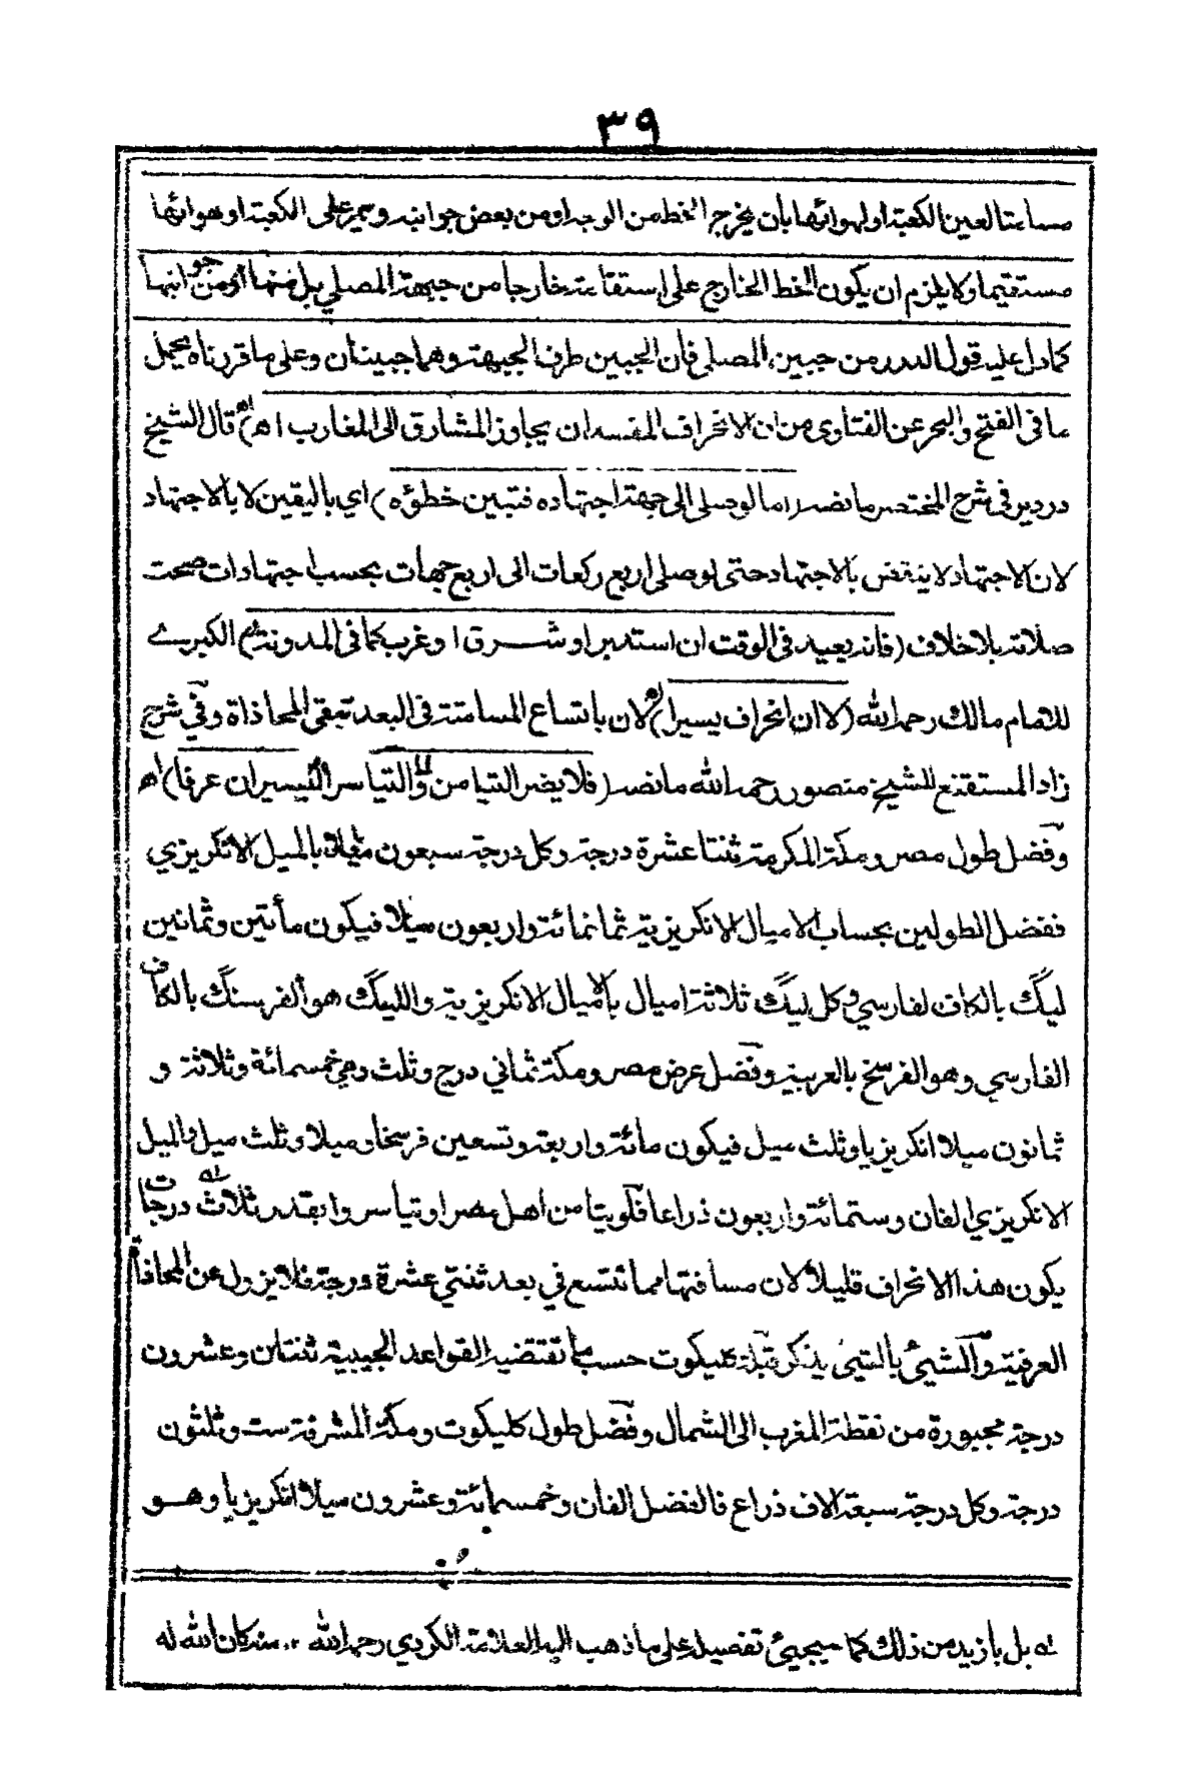 ٣٩
مسامتا لعين الكعبة او لهوائها بأن يخرج الخط من الوجه او من بعض جوانبه ويمر على الكعبة او هوائها
مستقيما ولا يلزم ان يكون الخط الخارج على استقامته خارجا من جبهة المصلي بل منها او من جوانبها
كما دل عليه قول الدرر من جبين المصلي فان الجبين طرف الجبهة وهما جبينان وعلى ما قررناه يحمل
ما في الفتح والبحر عن الفتاوى من ان الانحراف المفسد ان يجاوز المشارق الى المغارب اه) قال الشيخ
دردير في شرح المختصر ما نصه (اما لو صلى الى جهة اجتهاده فتبين خطؤه) اي باليقين لا بالاجتهاد
لان الاجتهاد لا ينتقض بالاجتهاد حتى لو صلى اربع ركعات الى اربع جهات بحسب اجتهادات صحت
صلاته بلا خلاف (فانه يعيد في الوقت ان استدبر او شرق او غرب كما في المدونة) الكبرے
للامام مالك رحمه الله (لا ان انحراف يسيرا) لان باتساع المسامتة في البعد تبقى المحاذاة وفي شرح
زاد المستقنع للشيخ منصور رحمه الله ما نصه (فلا يضر التيامن والتياسر اليسيران عرفا) اه
وفضل طول مصر ومكة المكرمة ثنتا عشرة درجة وكل درجة سبعون ميلا بالميل الانكريزي
ففضل الطولين بحساب الاميال الانكريزية ثمانمائة واربعون ميلا فيكون مأتين وثمانين
ليگ بالكاف الفارسي وكل ليگ ثلاثة اميال بالاميال الانكريزية والليگ هو الفرسنگ بالكاف
الفارسي وهو الفرسخ بالعربية وفضل عرض مصر ومكة ثماني درج وثلث وهي خمسمائة وثلاثة و
ثمانون ميلا انكريزيا وثلث ميل فيكون مائة واربعة وتسعين فرسخا وميلا وثلث ميل والميل
الانكريزي الفان وستمائة واربعون ذراعا فلو تيامن اهل مصر او تياسروا بقدر ثلاث درجات
يكون هذا الانحراف قليلا لان مسافتها مما تتسع في بعد ثنتي عشرة درجة فلا يزول عن المحاذاة
العرفية والشيئ بالشيئ يذكر قبلة كليكوت حسب ما تقتضيه القواعد الجيبية ثنتان وعشرون
درجة مجبورة من نقطة المغرب الى الشمال وفضل طول كليكوت ومكة المشرفة ست وثلثون
درجة وكل درجة سبعة الاف ذراع فالفضل الفان وخمسمائة وعشرون ميلا انكريزيا وهو
له بل بازيد من ذلك كما سيجيئ تفصيله على ما ذهب اليه العلامة الكردي رحمه الله ١٢ منه كان الله له